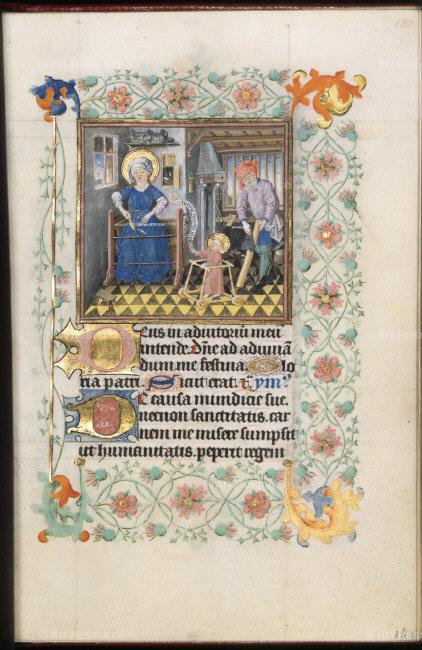 Deus in adiutoriu meu
intende. Dne ad adiuua
dum me festina. Glo
ria patri. Sicut erat. ym
De causa mundicie sue
necnon sanctitatis. car
nem me misere sumpsit
ut humanitatis. peperit regem